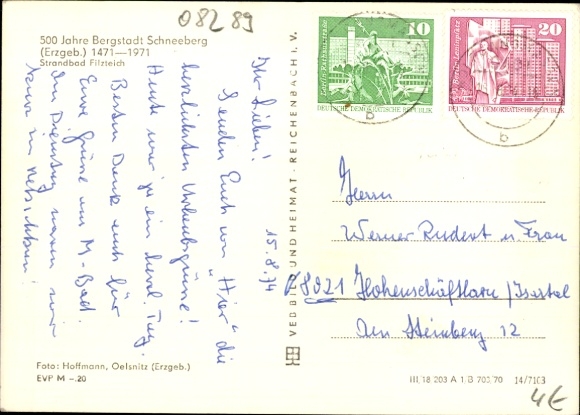 08289
500 Jahre Bergstadt Schneeberg
(Erzgeb.) 1471—1971
Strandbad Filzteich
15.8.74
Ihr Lieben!
Senden Euch von "Hier" die
herzlichsten Urlaubsgrüße!
Heute war ja ein herrl. Tag.
Besten Dank auch für
Eure Grüße aus M-Bad.
Am Dienstag waren wir
VEB BILD UND HEIMAT · REICHENBACH I. V.
10
Berlin, Neptunbrunnen
DEUTSCHE DEMOKRATISCHE REPUBLIK
20
Berlin, Leninplatz
DEUTSCHE DEMOKRATISCHE REPUBLIK
b
b
Herrn
Werner Rudert u. Frau
8021 Hohenschäftlarn / Isartal
Am Steinberg 12
Foto: Hoffmann, Oelsnitz (Erzgeb.)
EVP M –.20
III/18 203 A 1, B 703/70 14/7103
4€